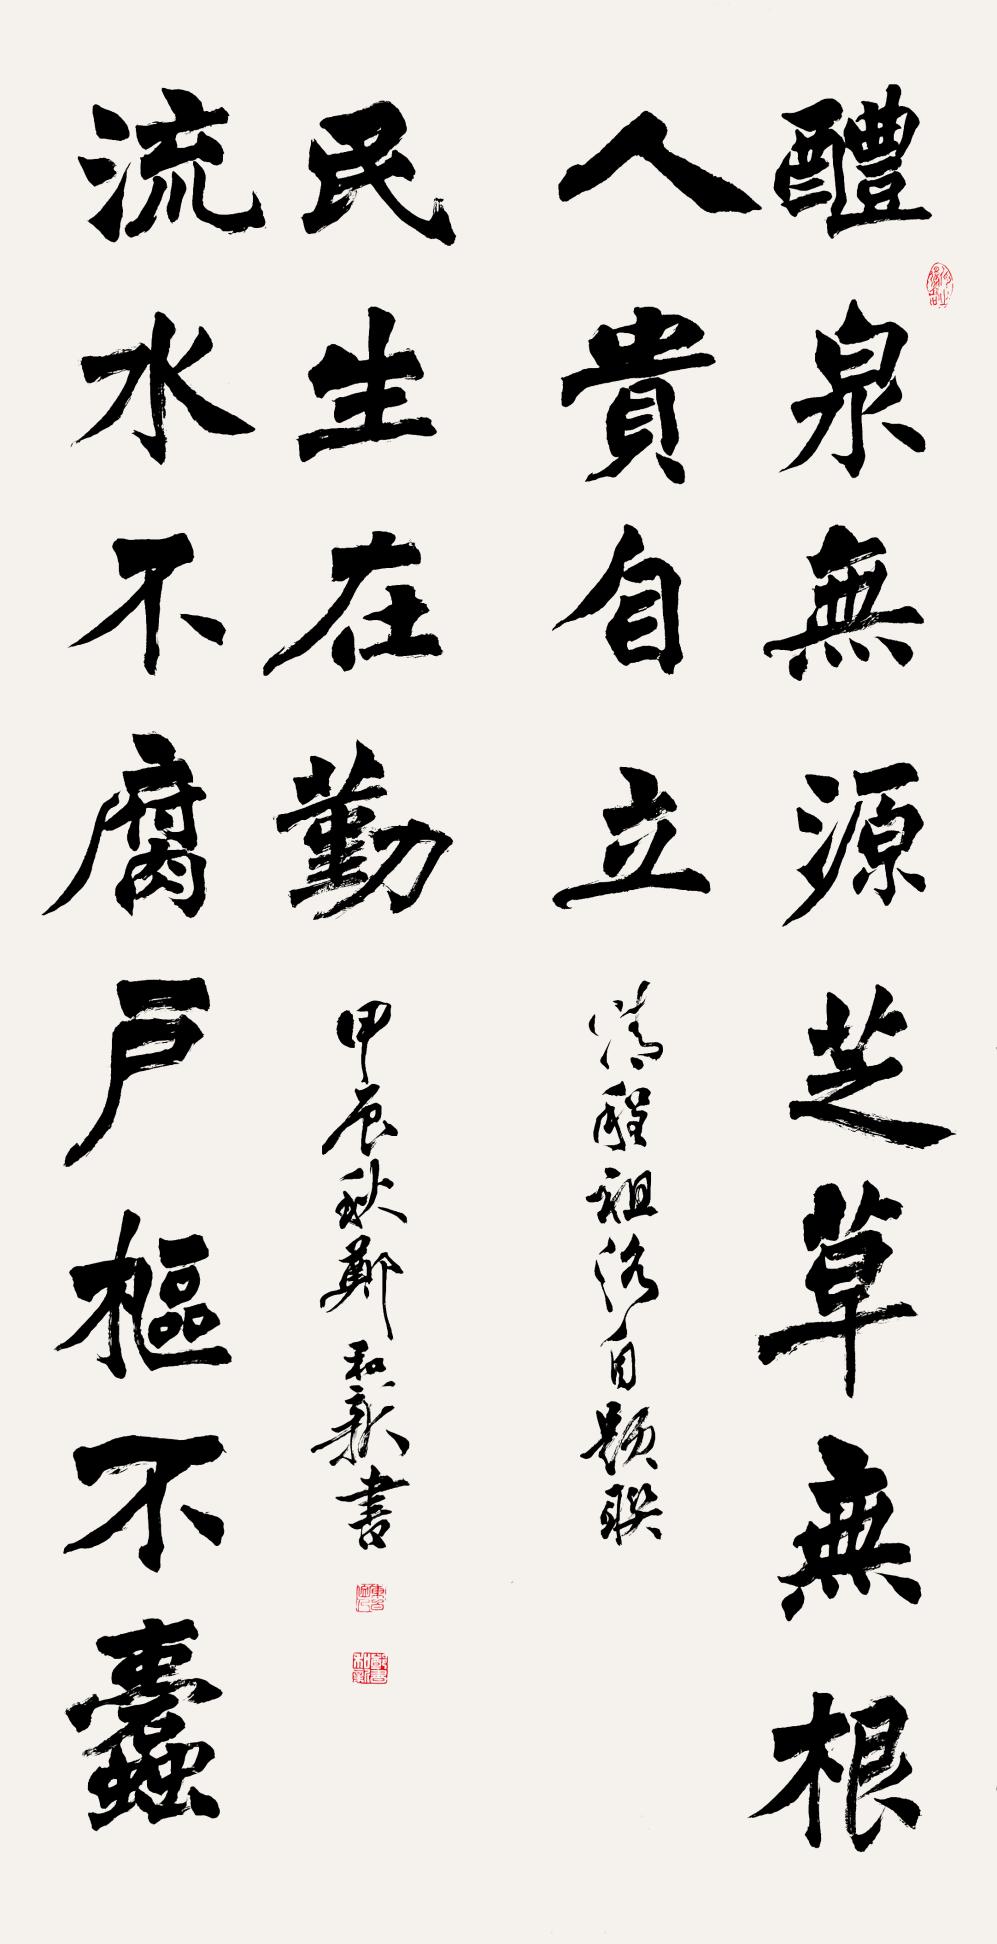 醴泉無源芝草無根
人貴自立
清程祖洛自題聯
流水不腐戶樞不蠹
民生在勤
甲辰秋鄭和新書